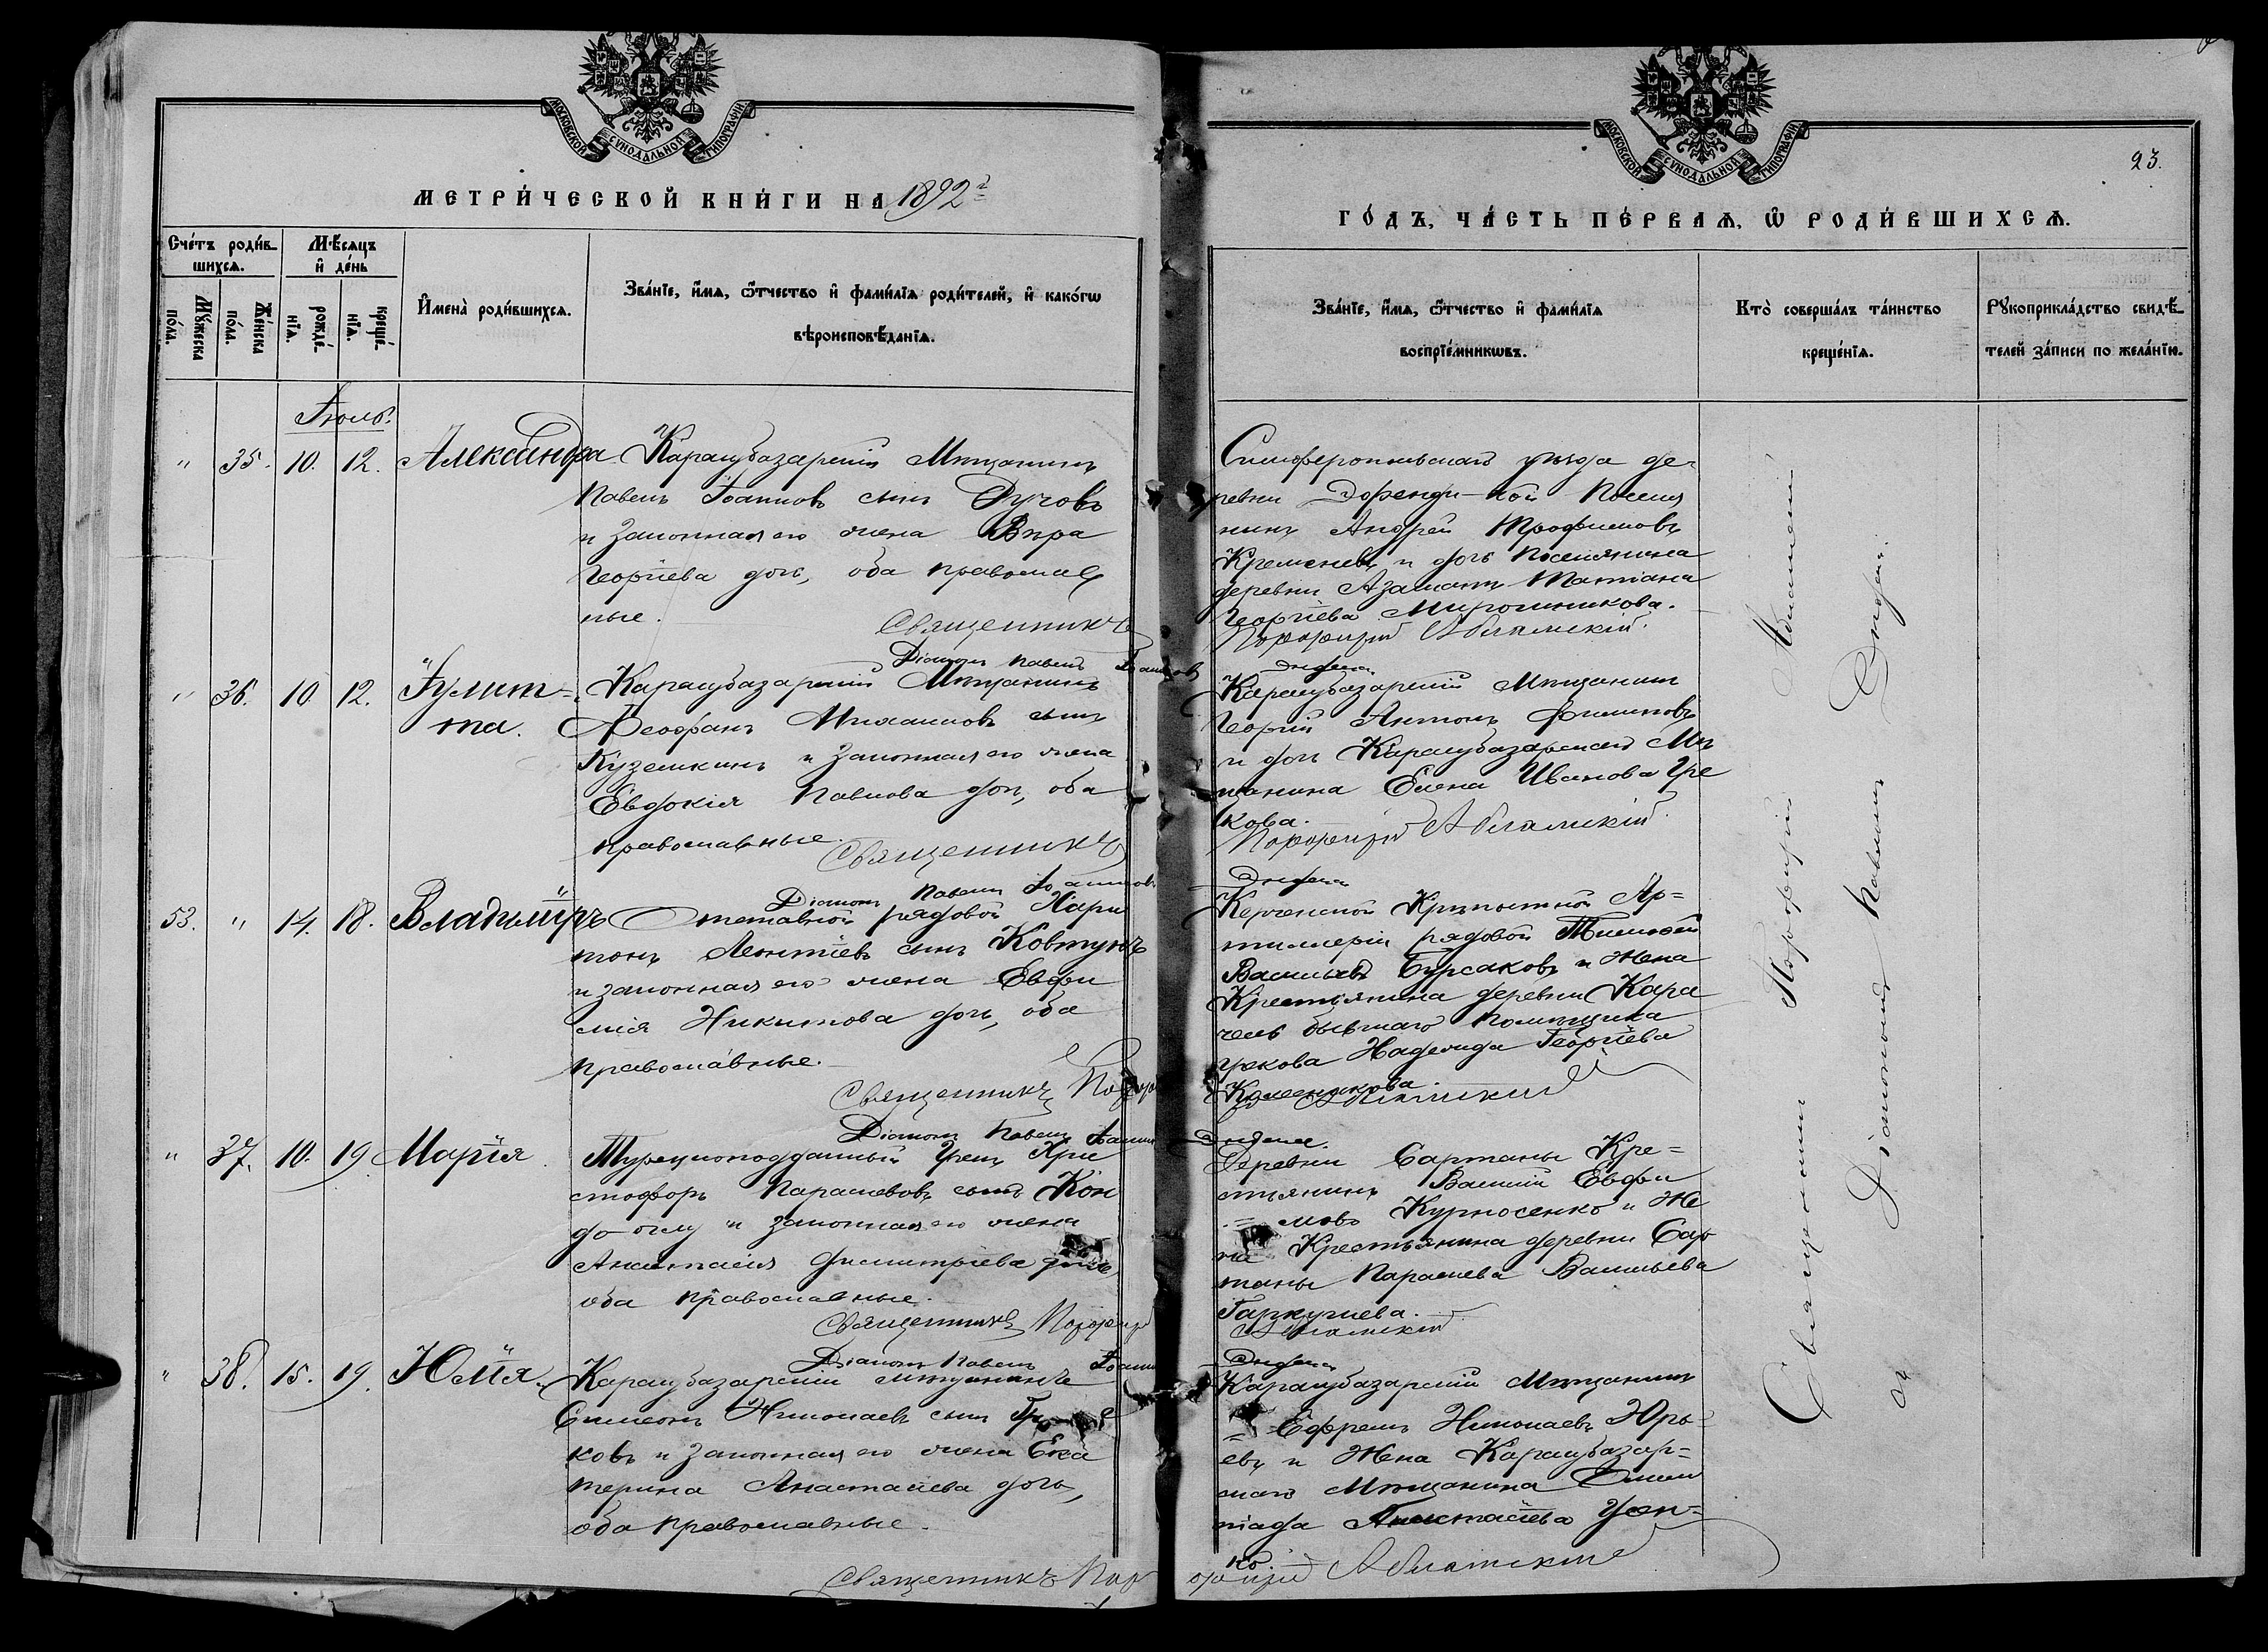 МОСКОВСКОЙ СѴНОДАЛЬНОЙ ТИПОГРАФІИ
МЕТРИ́ЧЕСКОЙ КНИ́ГИ НА 1892 г
Сче́тъ роди́в-
шихсѧ.
Мꙋ́жеска
по́ла.
Же́нска
по́ла.
Мѣ́сѧцъ
и҆ де́нь
рожде́-
нїѧ.
креще́-
нїѧ.
И҆мена̀ роди́вшихсѧ.
Зва́нїе, и҆́мѧ, ѻ҆́тчество и҆ фами́лїѧ роди́телей, и҆ како́гѡ
вѣроисповѣ́данїѧ.
Іюль.
" 35. 10. 12. Александра
Карасубазарскій Мѣщанинъ
Павелъ Іоанновъ сынъ
и законная его жена Вѣра
Георгіева дочь, оба православ
ные.
Священникъ
Діаконъ Павелъ
" 36. 10 12. Іулит-
та.
Карасубазарскій Мѣщанинъ
Феофанъ Михаиловъ сынъ
Куземкинъ и законная его жена
Евдокія Павлова дочь, оба
православные.
Священникъ
Діаконъ Павелъ Іоанновъ
53. " 14. 18. Владиміръ
Отставной рядовой Хари
тонъ Леонтіевъ сынъ Ковтунъ
и законная его жена Евфи
мія Никитова дочь, оба
православные.
Священникъ
Діаконъ Павелъ
" 37. 10. 19 Марія
Турецкоподданный Грекъ Хри
стофоръ Параскевовъ сынъ Кон
до оглу и законная его жена
Анастасія Димитріева дочь,
оба православные.
Священникъ Порфирій
Діаконъ Павелъ
" 38. 15. 19. Юлія
Карасубазарскій мѣщанинъ
Симеонъ Николаевъ сынъ
ковъ и законная его жена Ека
терина Анастасіева дочь,
оба православные.
Священникъ Пор
МОСКОВСКОЙ СѴНОДАЛЬНОЙ ТИПОГРАФІИ
23.
ГО́ДЪ, ЧА́СТЬ ПЕ́РВАѦ, Ѡ҆ РОДИ́ВШИХСѦ.
Зва́нїе, и҆́мѧ, ѻ҆́тчество и҆ фами́лїѧ
воспрїе́мникѡвъ.
Кто̀ соверша́лъ та́инство
креще́нїѧ.
Рꙋкоприкла́дство свидѣ́-
телей за́писи по жела́нїю.
Симферопольскаго уѣзда де-
ревни поселя
нинъ Андрей Трофимовъ
Кременевъ и дочь поселянина
деревни Азаматъ Татіана
Георгіева Мирошникова.
Порфирій Абламскій.
Карасубазарскій Мѣщанинъ
Георгій Антонъ Филиповъ
и дочь Карасубазарскаго Мѣ
щанина Елена Иванова Гре
кова.
Порфирій Абламскій.
Керченской Крѣпостной Ар-
тиллеріи рядовой Тимофей
Васильевъ Бурсаковъ и Жена
Крестьянина деревни Кара
чель бывшаго помѣщика
Грекова Надежда Георгіева
Колесникова.
Абламскій
Деревни Сартаны Кре-
стьянинъ Василій Евфи
мовъ Курносенко и Же
на Крестьянина деревни Сар
таны Параскева Васильева
Гаркушева.
Абламскій
Карасубазарскій Мѣщанинъ
Ефремъ Николаевъ Юрь-
евъ и Жена Карасубазар-
скаго Мѣщанина Олим
піада Анастасіева
ко.
фирій Абламскій
Священникъ Порфирій Абламскій
съ Діакономъ Павломъ